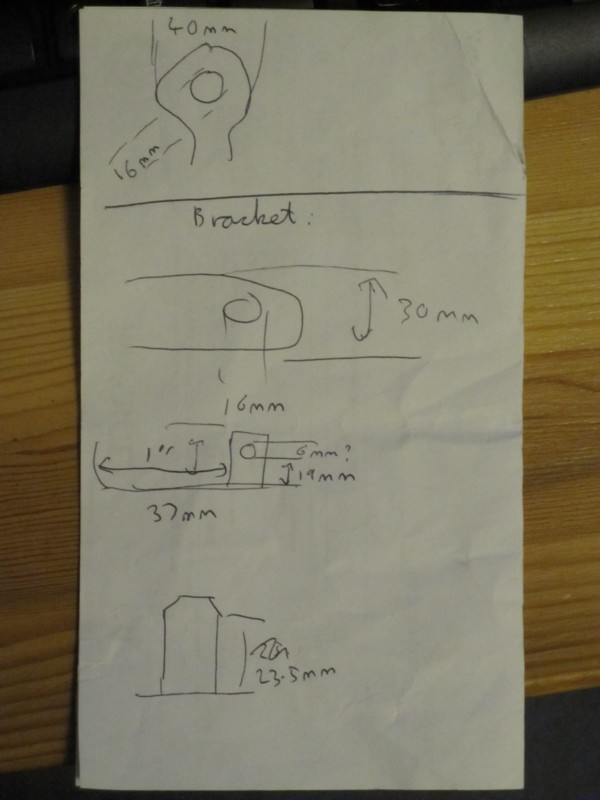 40mm
16mm
Bracket:
30mm
16mm
1"
6mm?
19mm
37mm
23.5mm